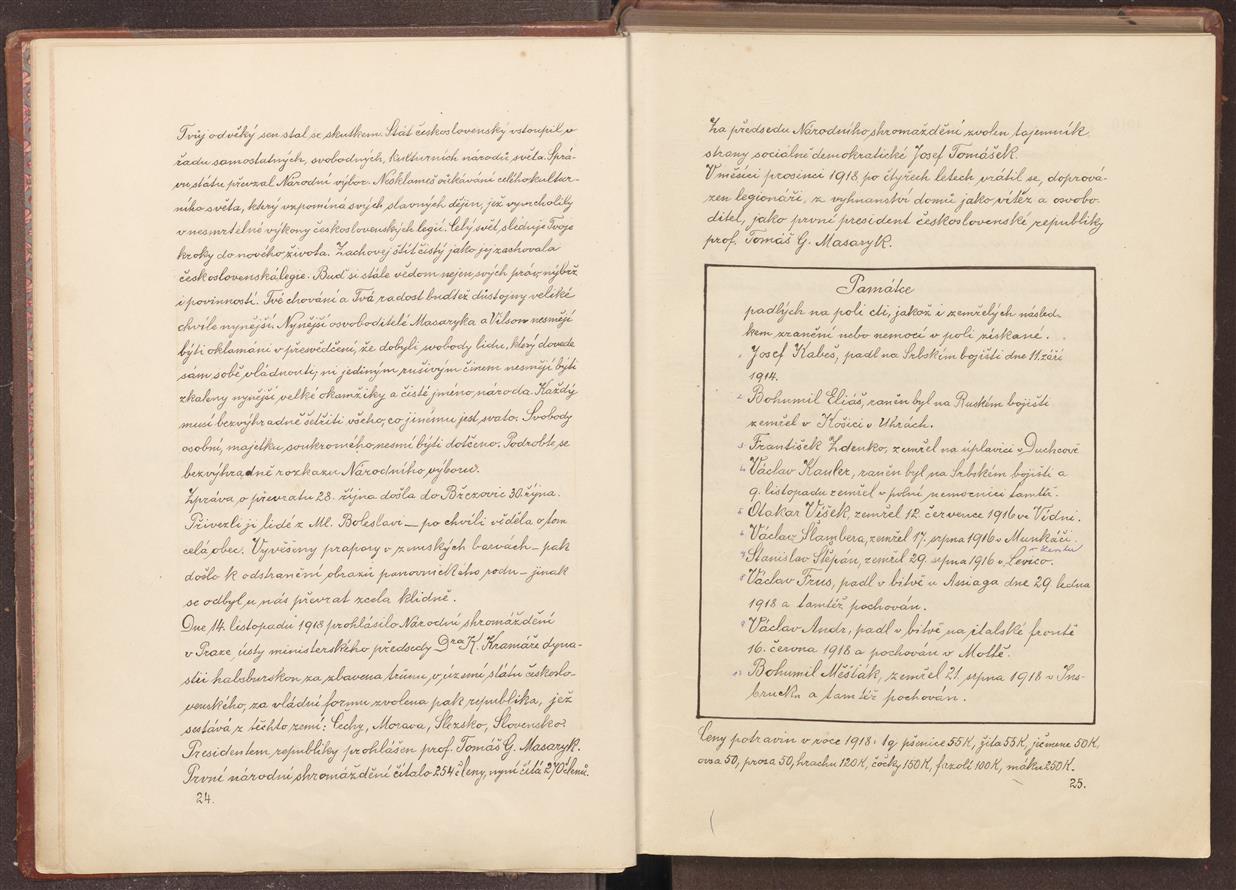 Tvůj odvěký sen stal se skutkem. Stát československý vstoupil v
řadu samostatných, svobodných, kulturních národů světa. Sprá-
vu státu převzal Národní výbor. Nesklameš očekávání celého kultur-
ního světa, který vzpomíná svých slavných dějin, jež vyvrcholily
v nesmrtelné výkony československých legií. Celý svět sleduje Tvoje
kroky do nového života. Zachovej štít čistý jako jej zachovala
československá legie. Buď si stále vědom nejen svých práv, nýbrž
i povinností. Tvé chování a Tvá radost budtež důstojny veliké
chvíle nynější. Nynější osvoboditelé Masaryk a Vilson nesmějí
býti oklamáni v přesvědčení, že dobyli svobody lidu, který dovede
sám sobě vládnouti; ni jediným rušivým činem nesmějí býti
zkaleny nynější velké okamžiky a čisté jméno národa. Každý
musí bezvýhradně šetřiti všeho, co jinému jest svato. Svobody
osobní, majetku soukromého nesmí býti dotčeno. Podrobte se
bezvýhradně rozkazu Národního výboru.
Zpráva o převratu 28. října došla do Březovic 30. října.
Přivezli ji lidé z Ml. Boleslavi – po chvíli věděla o tom
celá obec. Vyvěšeny prapory v zemských barvách – pak
došlo k odstranění obrazů panovnického rodu – jinak
se odbyl u nás převrat zcela klidně.
Dne 14. listopadu 1918 prohlásilo Národní shromáždění
v Praze, ústy ministerského předsedy Dra K. Kramáře dyna-
stii habsburskou za zbavena trůnu v území státu českoslo-
venského, za vládní formu zvolena pak republika, jež
sestává z těchto zemí: Čechy, Morava, Slezsko, Slovensko.
Presidentem republiky prohlášen prof. Tomáš G. Masaryk.
První národní shromáždění čítalo 254 členy, nyní čítá 270 členů.
24.
Za předsedu Národního shromáždění zvolen tajemník
strany sociálně demokratické Josef Tomášek.
V měsíci prosinci 1918 po čtyřech letech vrátil se, doprová-
zen legionáři, z vyhnanství domů jako vítěz a osvobo-
ditel, jako první president československé republiky
prof. Tomáš G. Masaryk.
Památce
padlých na poli cti, jakož i zemřelých násled-
kem zranění nebo nemocí v poli získané.
1. Josef Kabeš, padl na Srbském bojišti dne 11. září
1914.
2. Bohumil Eliáš, raněn byl na Ruském bojišti
zemřel v Košici v Uhrách.
3. František Zdenko, zemřel na úplavici v Duchcově
4. Václav Kauler, raněn byl na Srbském bojišti a
9. listopadu zemřel v polní nemocnici tamtéž.
5. Otakar Víšek, zemřel 12. července 1916 ve Vídni.
6. Václav Šlambera, zemřel 17. srpna 1916 v Munkáči.
7. Stanislav Štěpán, zemřel 29. srpna 1916 v Levico.
8. Václav Frus, padl v bitvě u Assiaga dne 29. ledna
1918 a tamtéž pochován.
9. Václav Andr, padl v bitvě na italské frontě
16. června 1918 a pochován v Mottě.
10. Bohumil Měšťák, zemřel 21. srpna 1918 v Ins-
brucku a tamtéž pochován.
Ceny potravin v roce 1918: 1q pšenice 55 K, žita 53 K, ječmene 50 K,
ovsa 50, prosa 50, hrachu 120 K, čočky 150 K, fazolí 100 K, máku 250 K.
25.